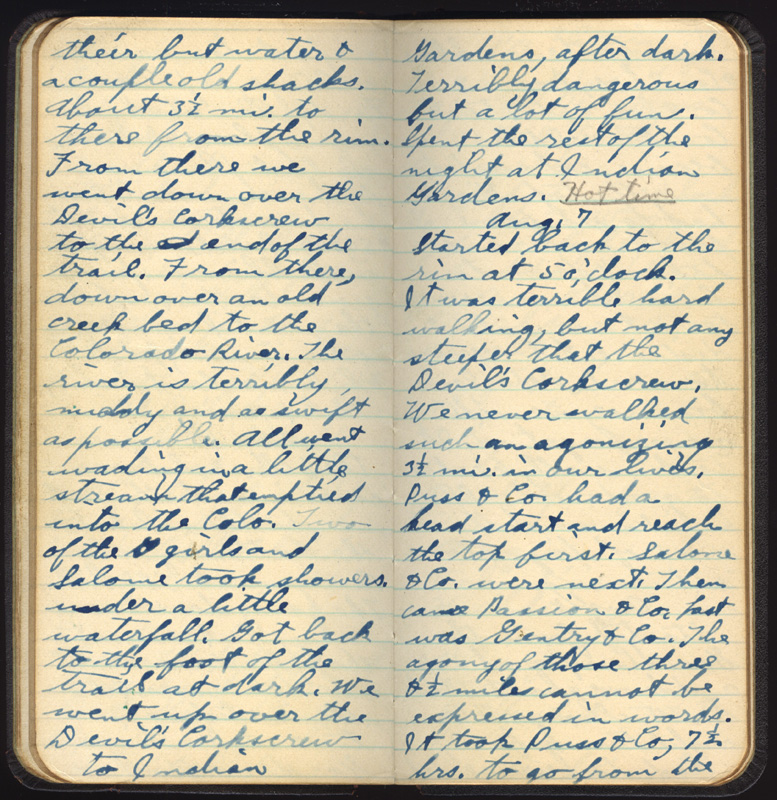 their but water &
a couple old shacks.
About 3½ mi. to
there from the rim.
From there we
went down over the
Devil's Corkscrew
to the end of the
trail. From there,
down over an old
creek bed to the
Colorado River. The
river is terribly,
muddy and as swift
as possible. All went
wading in a little
stream that emptied
into the Colo. Two
of the girls and
Salome took showers.
under a little
waterfall. Got back
to the foot of the
trail at dark. We
went up over the
Devil's Corkscrew
to Indian
Gardens, after dark.
Terribly dangerous
but a lot of fun.
Spent the rest of the
night at Indian
Gardens. Hot time
Aug. 7
Started back to the
rim at 5 o'clock.
It was terrible hard
walking, but not any
steeper that the
Devil's Corkscrew.
We never walked
such an agonizing
3½ mi. in our lives.
Puss & Co. had a
head start and reach
the top first. Salome
& Co. were next. Then
came Passion & Co. Last
was Gentry & Co. The
agony of those three
& ½ miles cannot be
expressed in words.
It took Puss & Co, 7½
hrs. to go from the